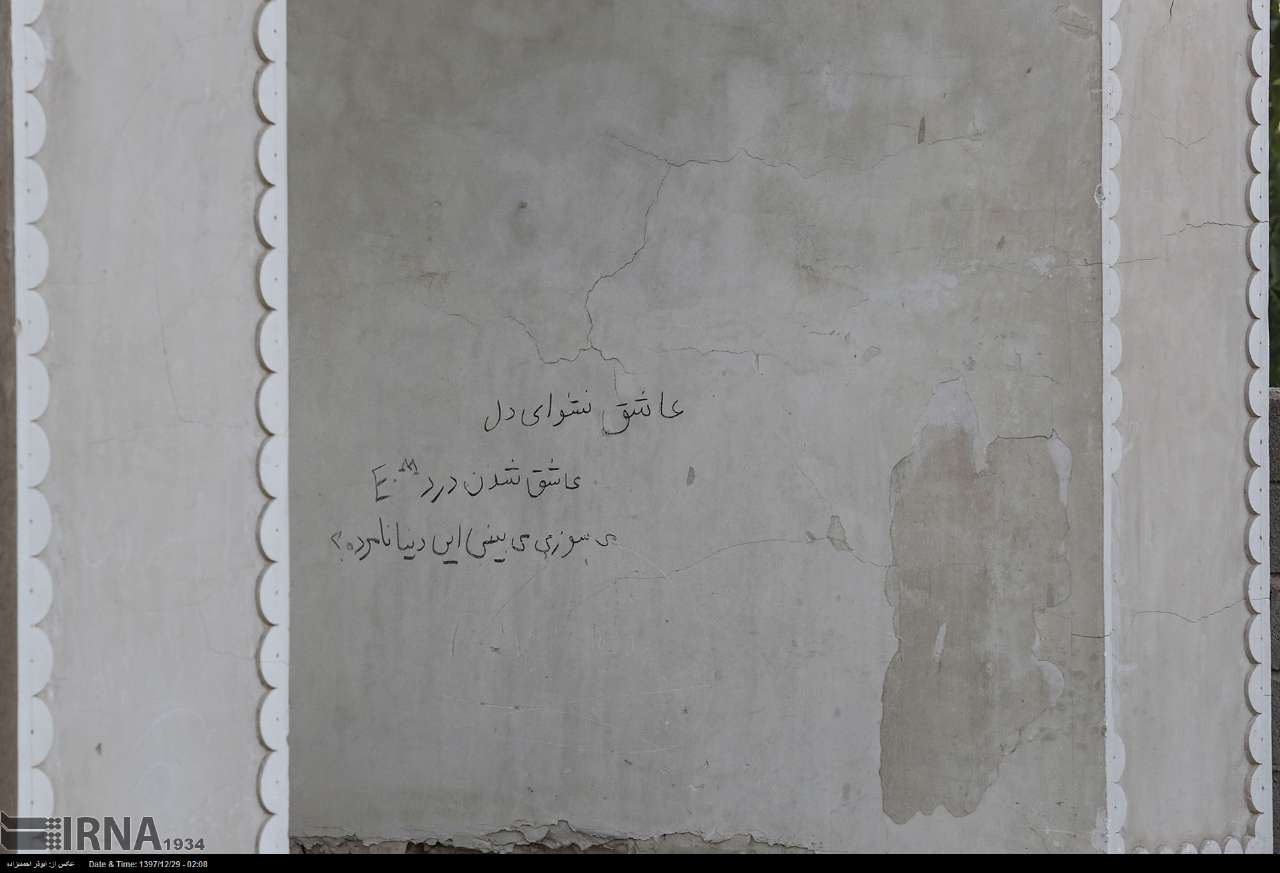 عاشق نشو ای دل
عاشق شدن درد E.M
می سوزی می بینی این دنیا نامرده؟
IRNA 1934
عکس از: ابوذر احمدیزاده Date & Time: 1397/12/29 - 02:08